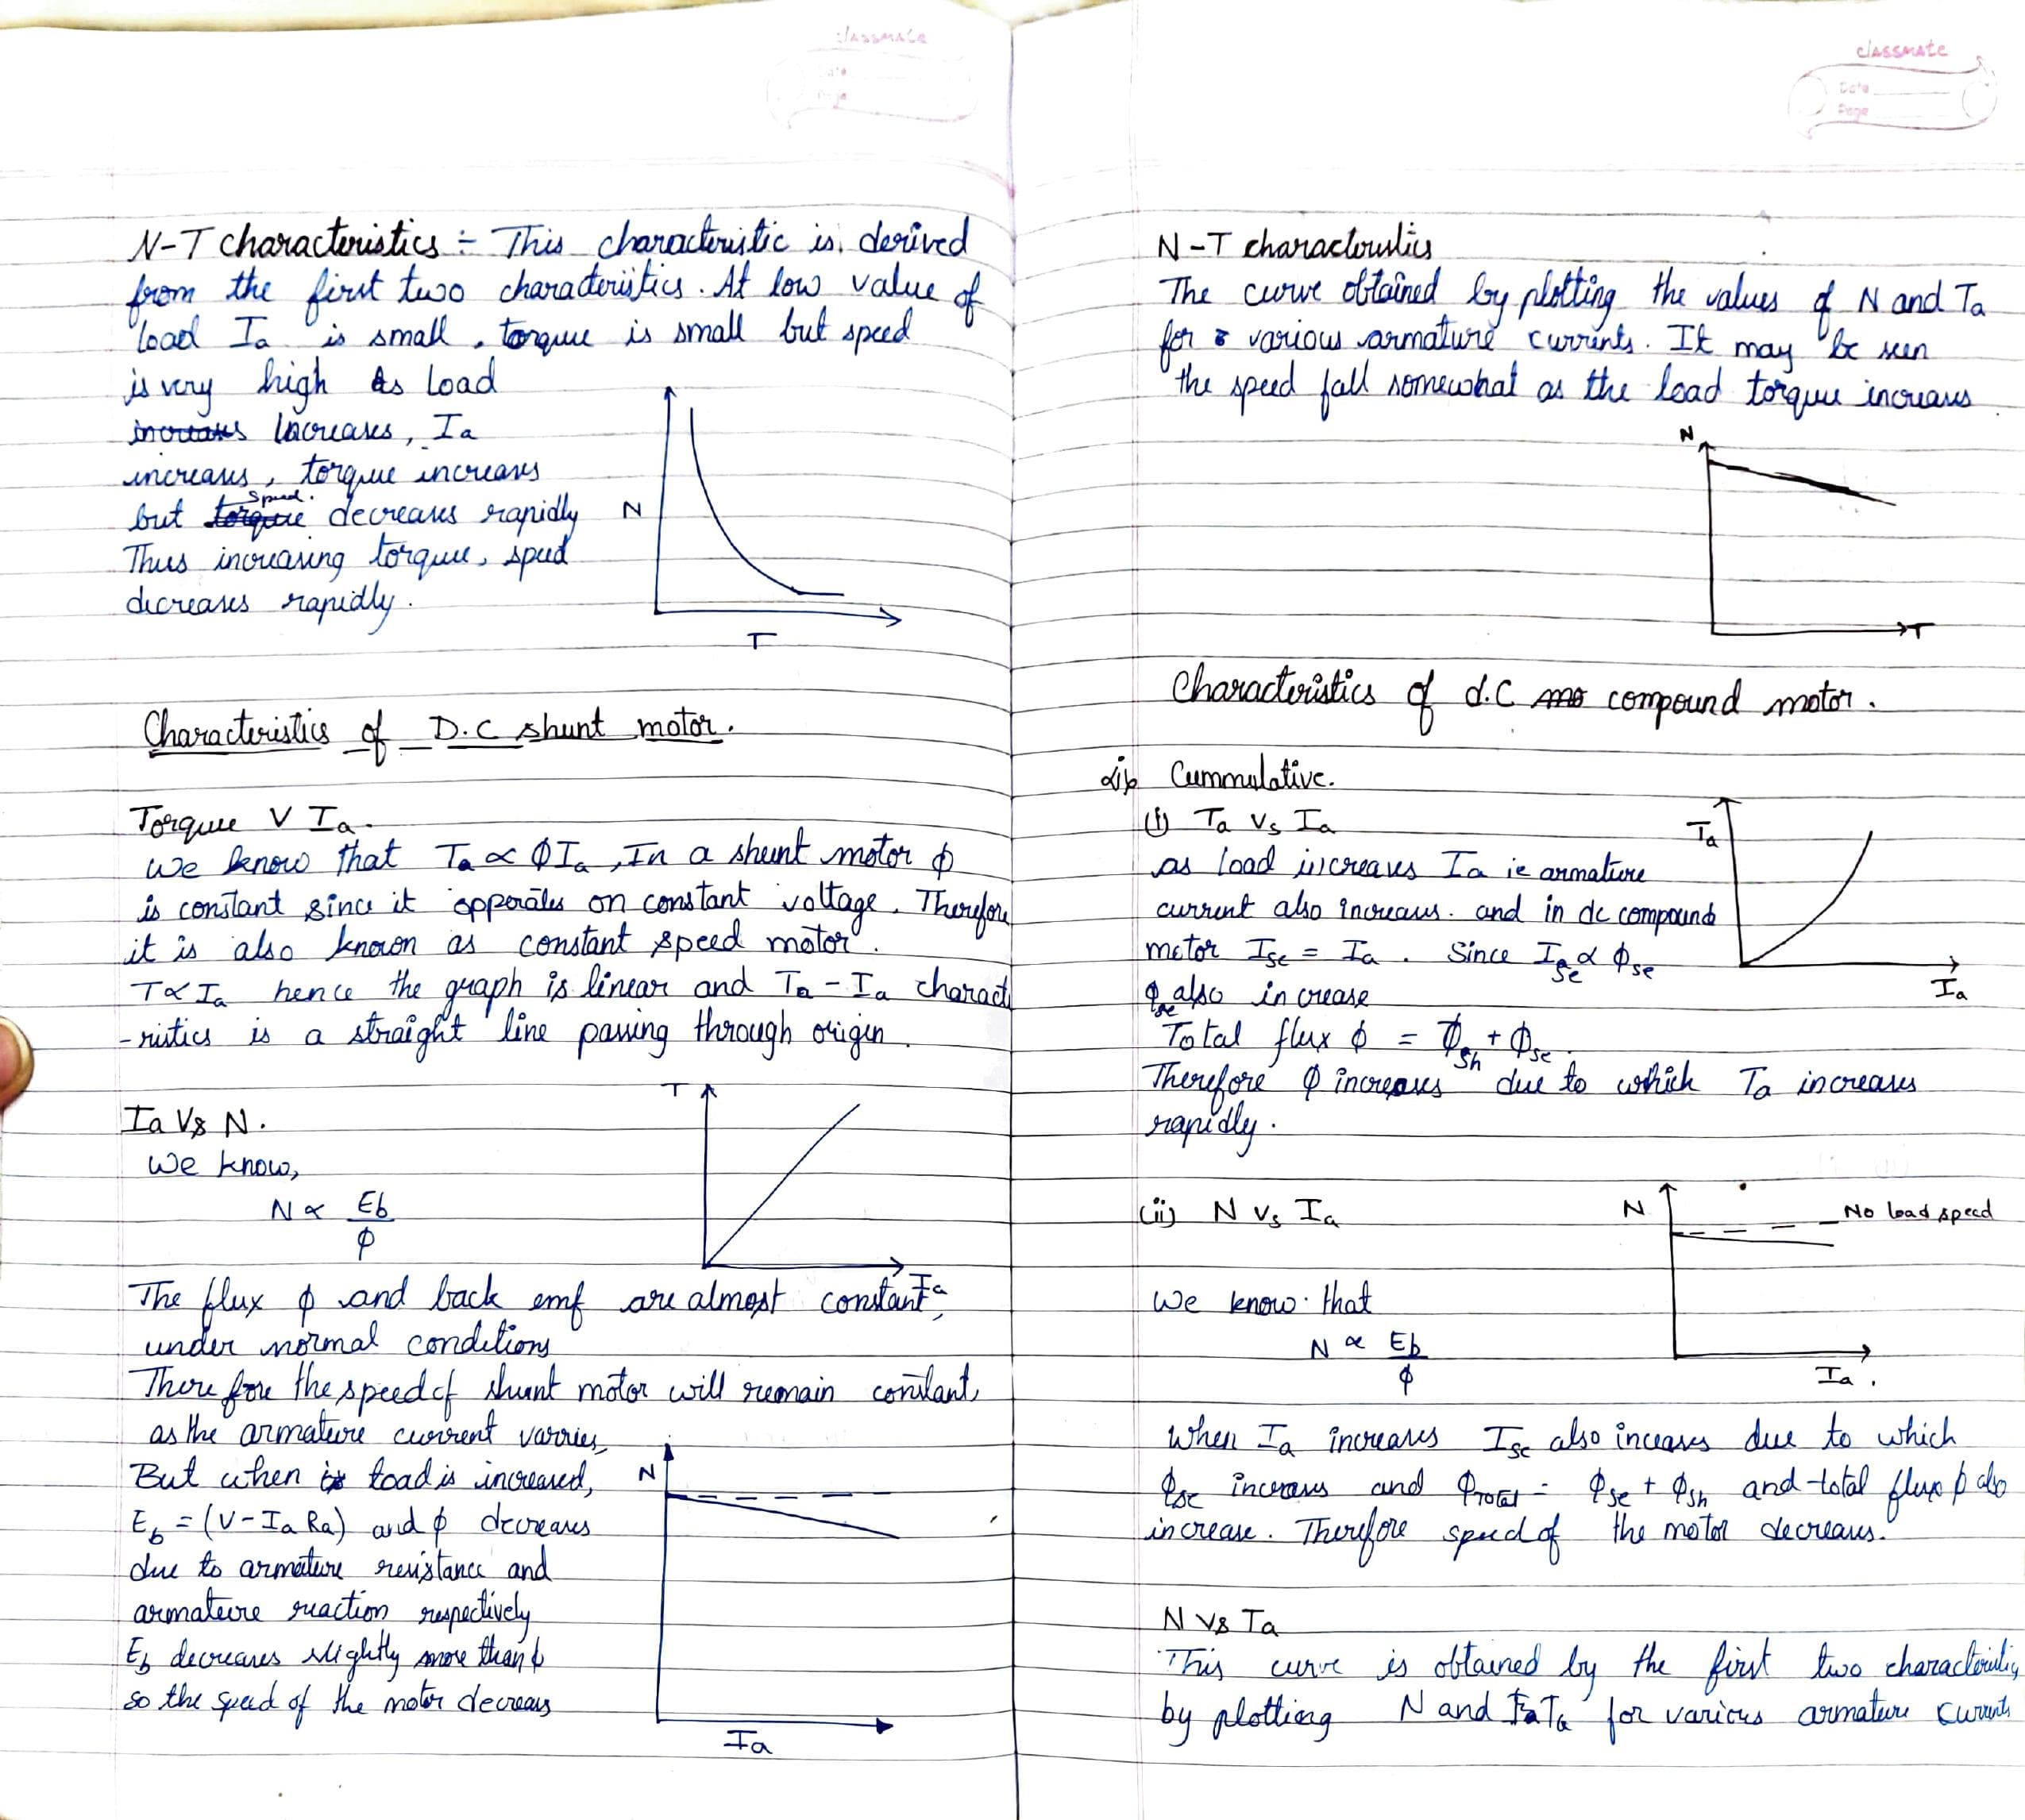 classmate
Date
Page
N-T characteristics :- This characteristic is derived
from the first two characteristics. At low value of
load Ia is small, torque is small but speed
is very high As load
increases increases, Ia
increases, torque increases
speed.
but torque decreases rapidly
Thus increasing torque, speed
decreases rapidly.
N
T
Characteristics of D.C shunt motor.
Torque V Ia.
We know that Ta ∝ ΦIa, In a shunt motor Φ
is constant since it opperates on constant voltage. Therefore
it is also known as constant speed motor.
T∝Ia hence the graph is linear and Ta-Ia charact
-ristics is a straight line passing through origin.
T
Ia
Ia Vs N.
We know,
N ∝ Eb
Φ
The flux Φ and back emf are almost constant,
under normal conditions
There fore the speed of shunt motor will remain constant,
as the armature current varries,
But when is load is increased,
Eb = (V-IaRa) and Φ decreases
due to armature resistance and
armature reaction respectively
Eb decreases slightly more than Φ
so the speed of the motor decreases
N
Ia
classmate
Date
Page
N-T characteristics
The curve obtained by plotting the values of N and Ta
for various armature currents. It may be seen
the speed fall somewhat as the load torque increases
N
T
Characteristics of d.c mo compound motor.
Cummulative.
(i) Ta Vs Ia
as load increases Ia ie armature
current also increases. and in dc compound
motor Ise = Ia. Since Ise ∝ Φse
Φse also increase
Total flux Φ = Φsh + Φse.
Therefore Φ increases due to which Ta increases
rapidly.
Ta
Ia
(ii) N Vs Ia
N
No load speed
Ia.
We know that
N ∝ Eb
Φ
When Ia increases Ise also inceases due to which
Φse increases and Φtotal = Φse + Φsh and total flux Φ also
increase. Therefore speed of the motor decreases.
N Vs Ta
This curve is obtained by the first two characteristics
by plotting N and Ta for various armature currents